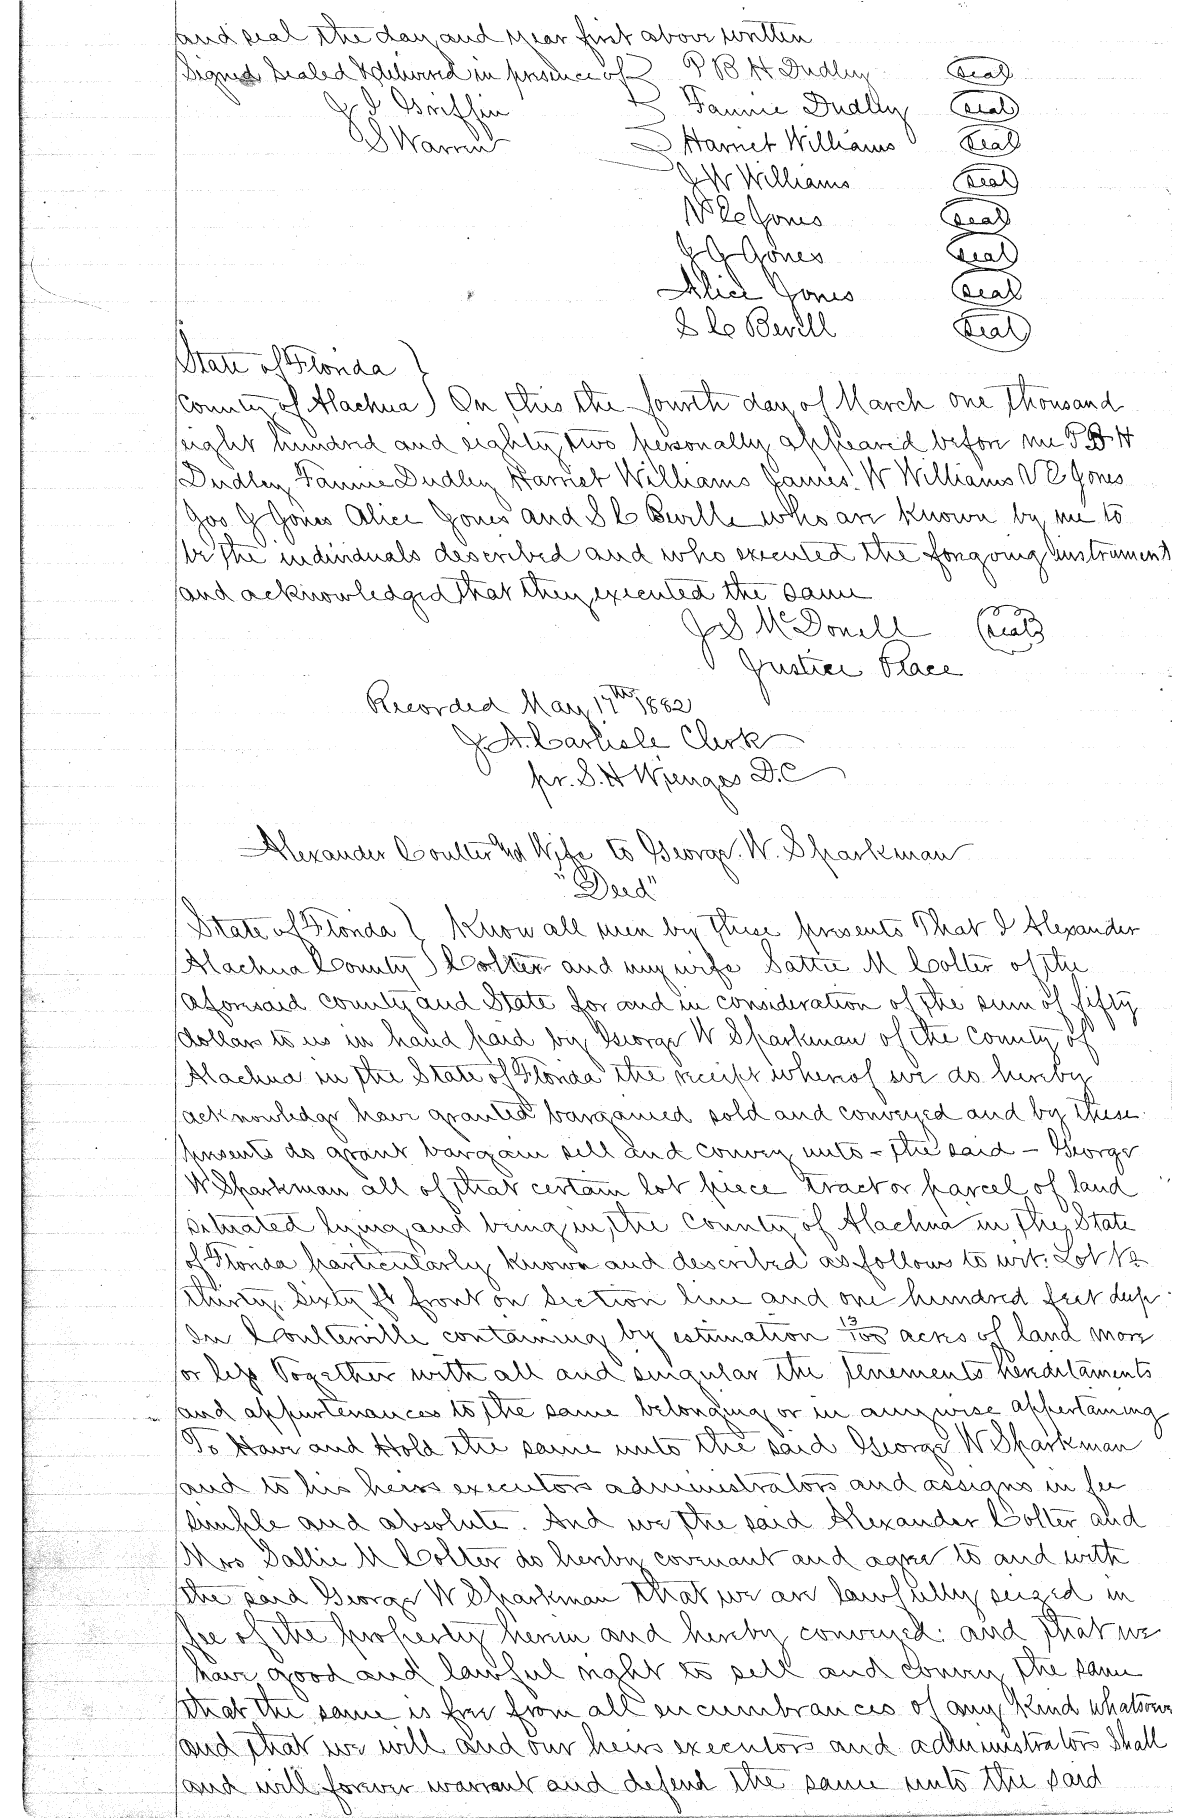 and seal the day and year first above written
Signed Sealed & delivered in presence of } P B H Dudley (seal)
J I Griffin } Fannie Dudley (seal)
S Warren } Harriet Williams (seal)
J W Williams (seal)
V C Jones (seal)
J G Jones (seal)
Alice Jones (seal)
S C Bevill (seal)
State of Florida }
County of Alachua } On this the fourth day of March one thousand
eight hundred and eighty two personally appeared before me P B H
Dudley Fannie Dudley Harriet Williams James. W Williams V C Jones
Jos G Jones Alice Jones and S C Beville who are known by me to
be the individuals described and who executed the foregoing instrument
and acknowledged that they executed the same
J S McDonell (seal)
Justice Place
Recorded May 17th 1882
J. A. Carlisle Clerk
pr. S. H Wienges D.C
Alexander Coulter and Wife to George. W. Sparkman
"Deed"
State of Florida } Know all men by these presents That I Alexander
Alachua County } Colter and my wife Sattie M Colter of the
aforesaid county and State for and in consideration of the sum of fifty
dollars to us in hand paid by George W Sparkman of the County of
Alachua in the State of Florida the receipt whereof we do hereby
acknowledge have granted bargained sold and conveyed and by these
presents do grant bargain sell and convey unto - the said - George
W Sparkman all of that certain lot piece tract or parcel of land
situated lying and being in the County of Alachua in the State
of Florida particularly known and described as follows to wit: Lot No
thirty, Sixty ft front on Section line and one hundred feet deep
In Coulterville containing by estimation 13/100 acres of land more
or less Together with all and singular the tenements hereditaments
and appurtenances to the same belonging or in anywise appertaining
To Have and Hold the same unto the said George W Sparkman
and to his heirs executors administrators and assigns in fee
simple and absolute. And we the said Alexander Colter and
Mrs Sallie M Colter do hereby covenant and agree to and with
the said George W Sparkman that we are lawfully seized in
fee of the property herein and hereby conveyed: and that we
have good and lawful right to sell and convey the same
that the same is free from all encumbrances of any kind whatsoever
and that we will and our heirs executors and administrators Shall
and will forever warrant and defend the same unto the said